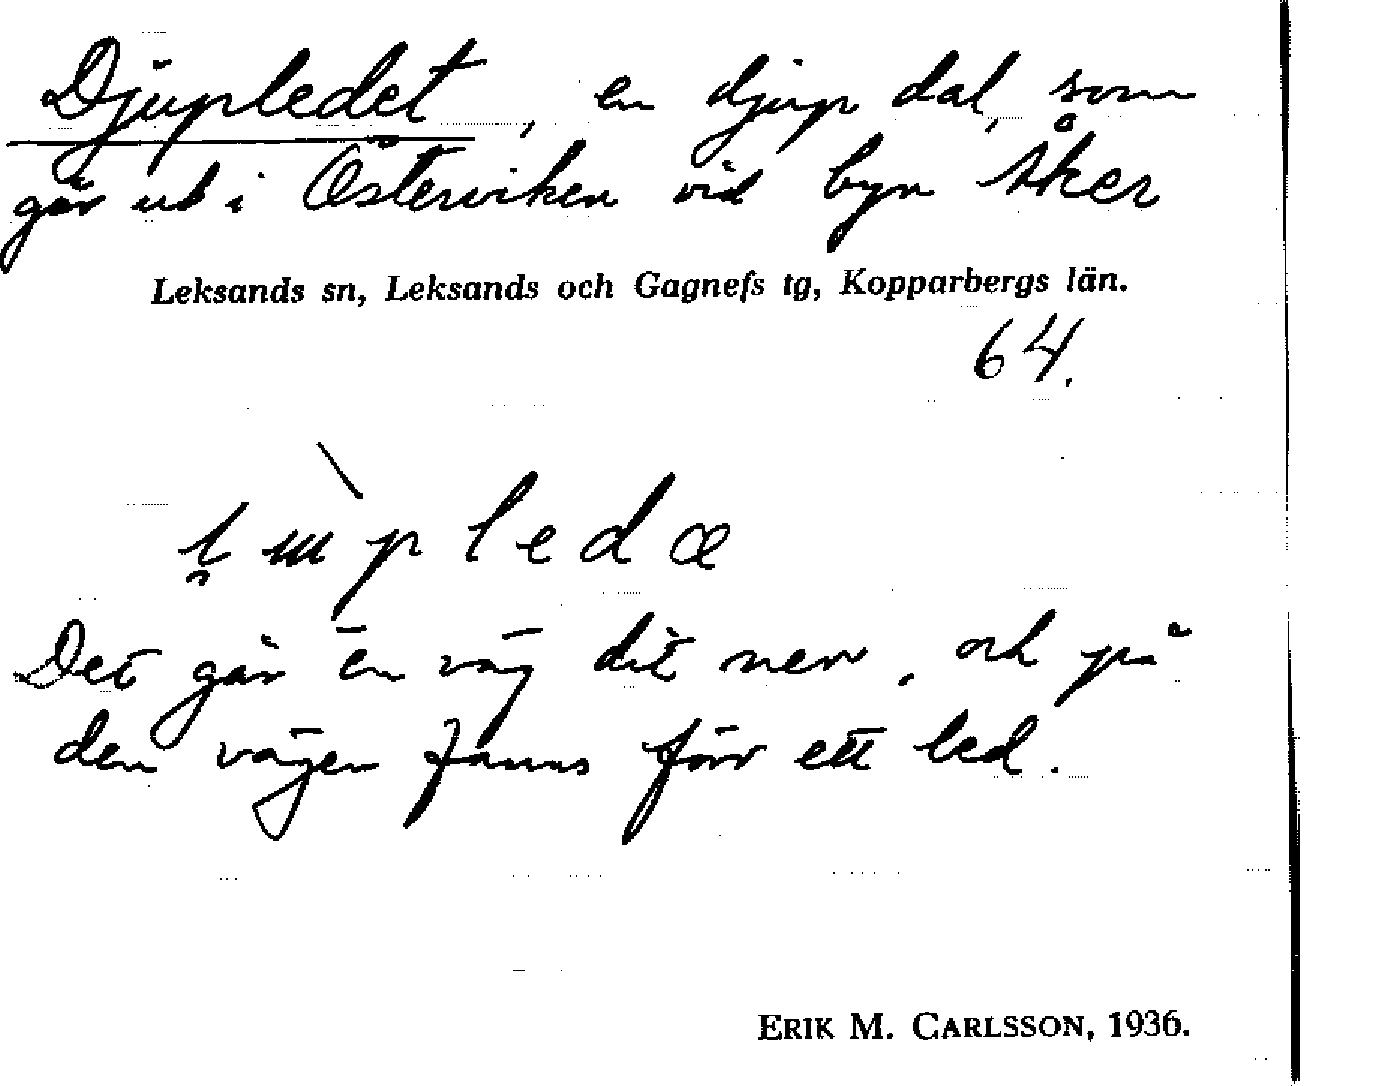 Djupledet, en djup dal, som
går ut i Österviken vid byn Åker
Leksands sn, Leksands och Gagnefs tg, Kopparbergs län.
64.
Det går en väg dit ner, och på
den vägen fanns förr ett led.
ERIK M. CARLSSON, 1936.